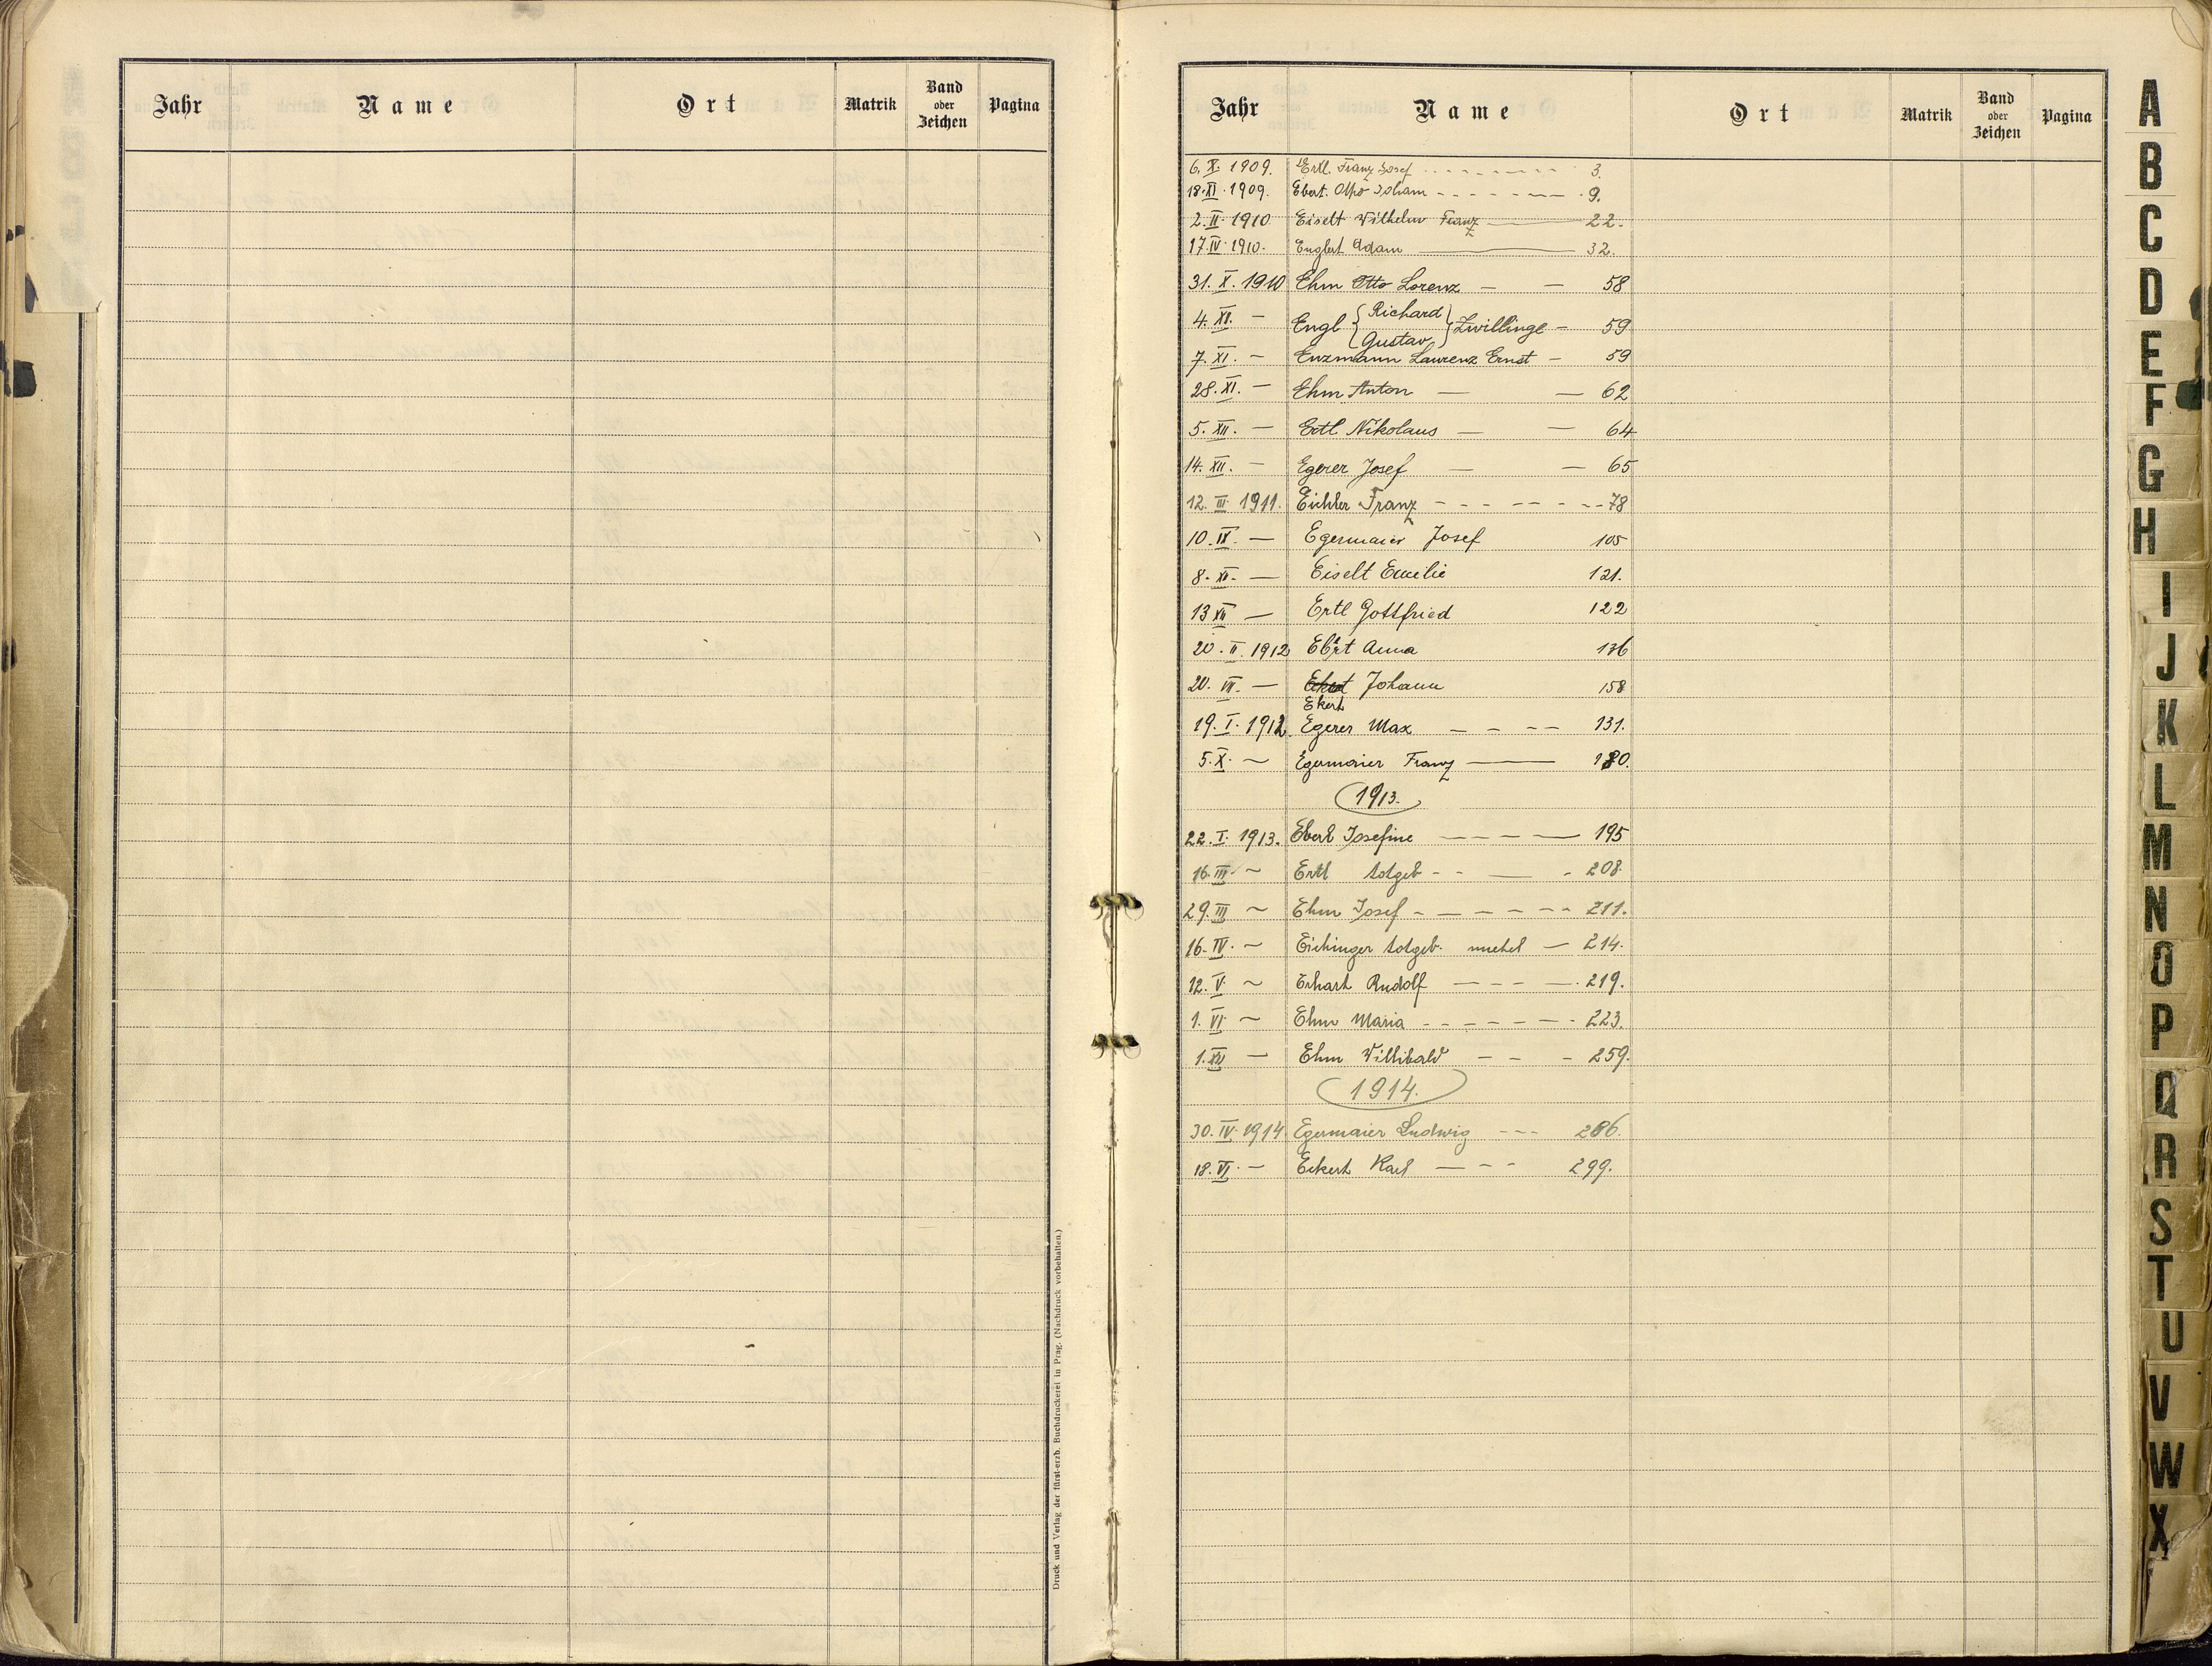 Jahr Name Ort Matrik Band oder Zeichen Pagina
Druck und Verlag der fürst-erzb. Buchdruckerei in Prag. (Nachdruck vorbehalten.)
Jahr Name Ort Matrik Band oder Zeichen Pagina
6. X. 1909. Ertl. Franz Josef - - - - - - - - - 3.
18. XI. 1909. Ebert. Otto Johann - - - - - - 9.
2. II. 1910 Eiselt Wilhelm Franz — 22.
17. IV. 1910. Englert Adam — 32.
31. X. 1910 Ehm Otto Lorenz — — 58
4. XI. — Engl { Richard Gustav } Zwillinge — 59
7. XI. — Enzmann Laurenz Ernst — 59
28. XI. — Ehm Anton — — 62
5. XII. — Ertl Nikolaus — — 64
14. XII. — Egerer Josef — — 65
12. III. 1911. Eichler Franz - - - - - - - - 78
10. IX. — Egermaier Josef 105
8. XII. — Eiselt Emilie 121.
13 XII — Ertl Gottfried 122
20. II. 1912 Ebert Anna 136
20. VII. — Johann 158
Ekert
19. I. 1912. Egerer Max — - - - 131.
5. X. ~ Egermaier Franz — 180.
1913.
22. I. 1913. Eberl Josefine — — — — 195
16. III. ~ Ertl totgeb - - — - 208.
29. III ~ Ehm Josef - — - - - - - 211.
16. IV. ~ Eichinger totgeb. unehel — 214.
12. V. ~ Erhart Rudolf — - - —. 219.
1. VI ~ Ehm Maria - - - - - - - 223.
1. XII — Ehm Willibald — - - 259.
1914.
30. IV. 1914. Egermaier Ludwig - - - 286.
18. VI. — Eckert Karl — - - 299.
A
B
C
D
E
F
G
H
I
J
K
L
M
N
O
P
Q
R
S
T
U
V
W
X